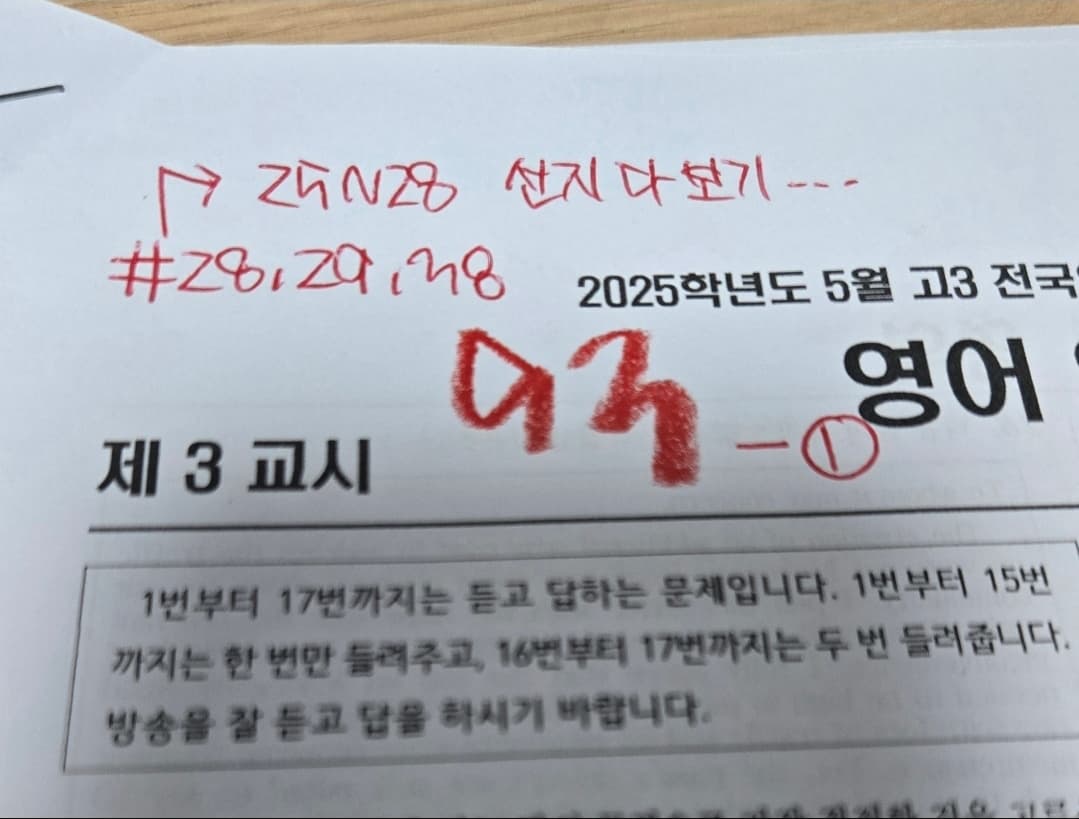 → 25~28 선지 다 보기---
#28, 29, 38
2025학년도 5월 고3 전국
93 - ①
영어
제 3 교시
1번부터 17번까지는 듣고 답하는 문제입니다. 1번부터 15번
까지는 한 번만 들려주고, 16번부터 17번까지는 두 번 들려줍니다.
방송을 잘 듣고 답을 하시기 바랍니다.